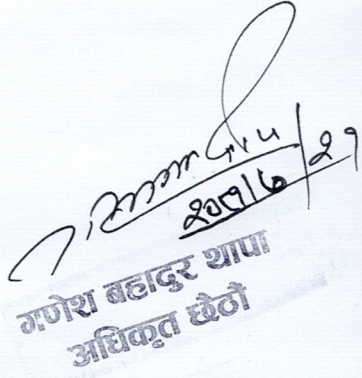 २०७१/७/२१
गणेश बहादुर थापा
अधिकृत छैठौं